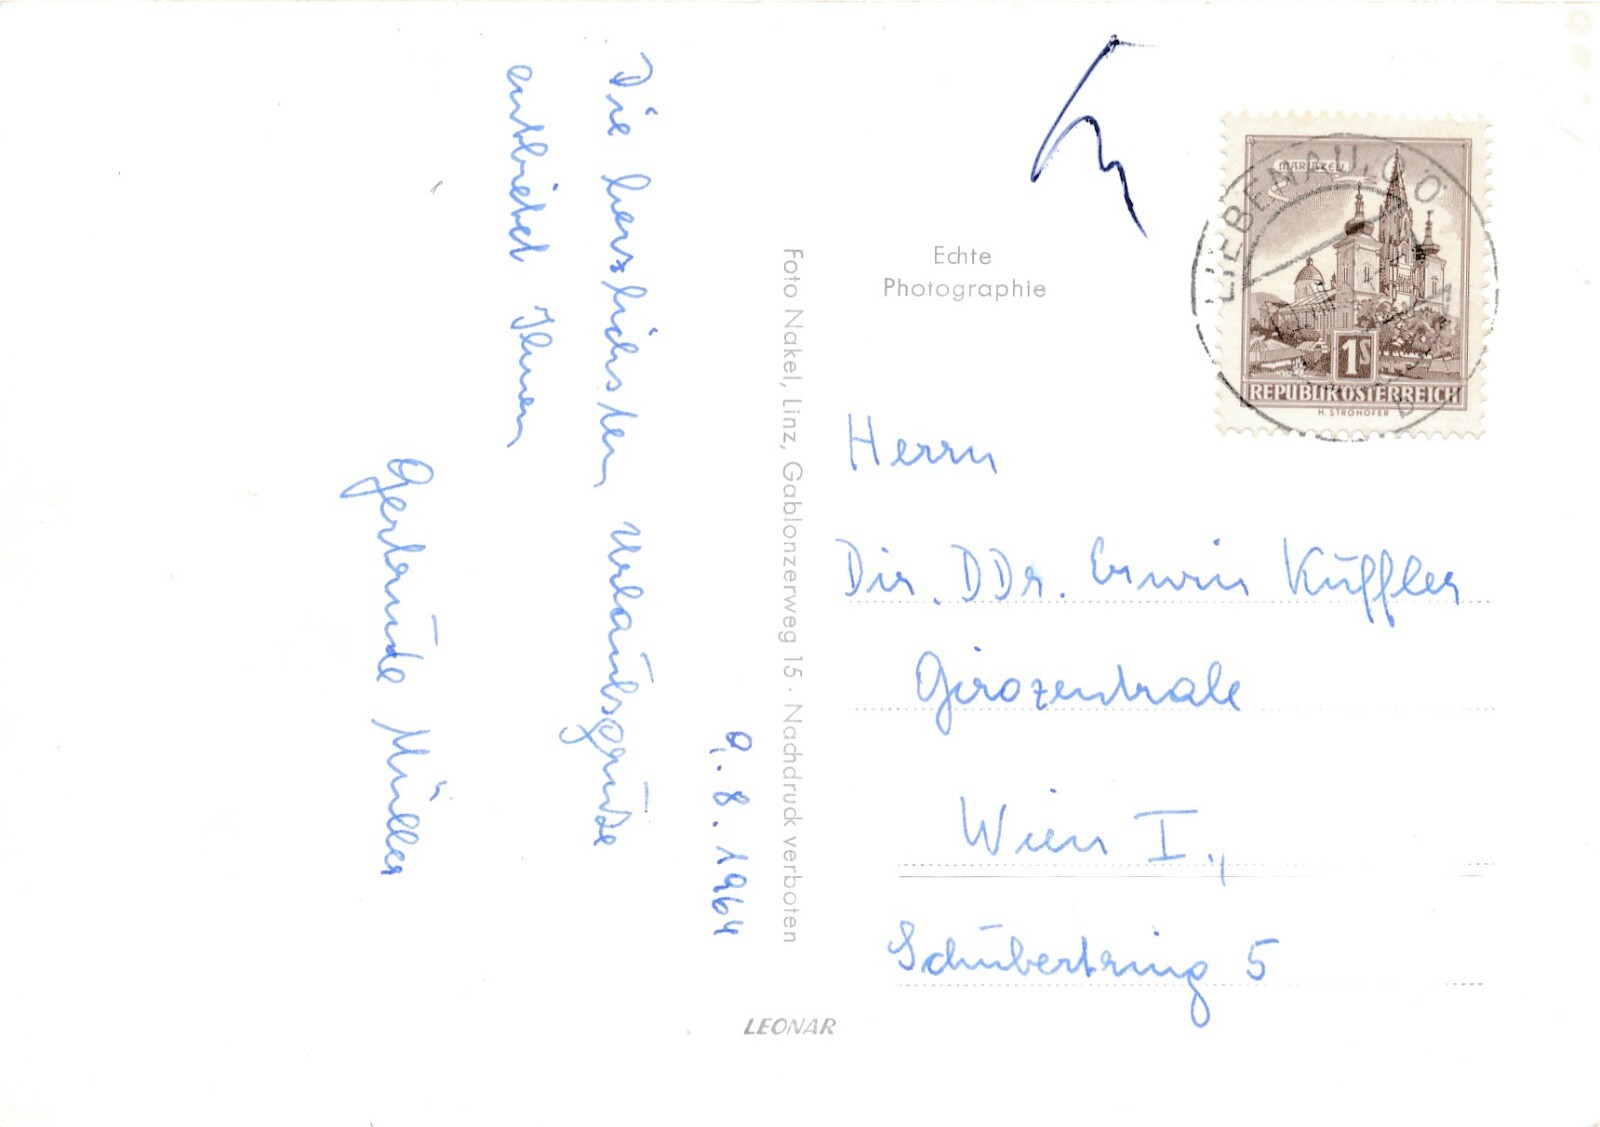 9.8.1964
Die herzlichsten Urlaubsgrüße
entbietet Ihnen
Gertraude Müller
Foto Nakel, Linz, Gablonzerweg 15 · Nachdruck verboten
Echte
Photographie
MARIAZELL
LIEBENAU, O.Ö.
1S
REPUBLIK ÖSTERREICH
H. STROHOFER
Herrn
Dir. DDr. Erwin Küffler
Girozentrale
Wien I.,
Schubertring 5
LEONAR